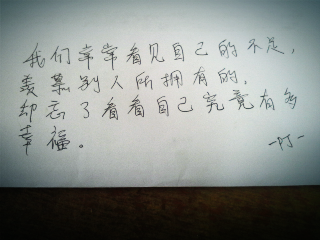 我们常常看见自己的不足,
羡慕别人所拥有的.
却忘了看看自己究竟有多
幸福。